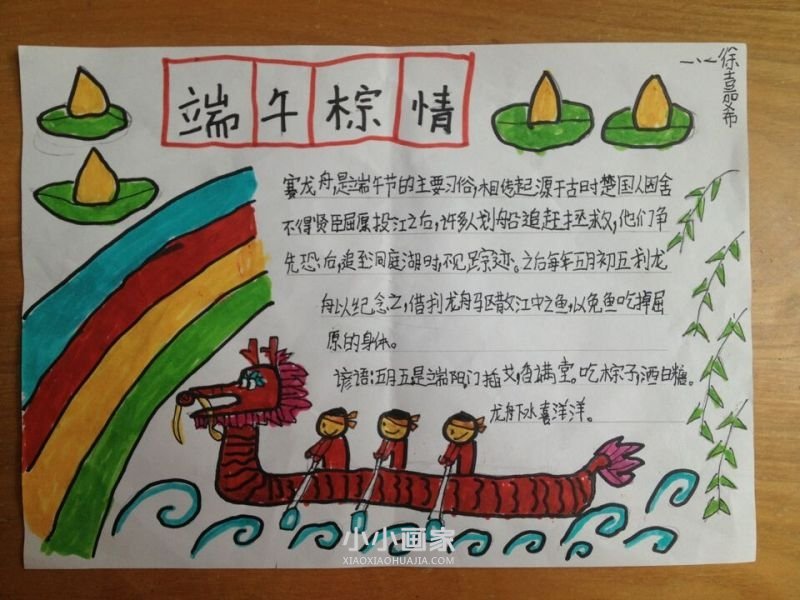 端午棕情
一、一
徐嘉希
赛龙舟,是端午节的主要习俗,相传起源于古时楚国人因舍
不得贤臣屈原投江之后,许多人划船追赶拯救,他们争
先恐后,追至洞庭湖时不见踪迹。之后每年五月初五划龙
舟以纪念之,借划龙舟驱散江中之鱼,以免鱼吃掉屈
原的身体。
谚语:五月五是端阳门插艾香满堂。吃棕子洒白糖。
龙舟下水喜洋洋。
小小画家
XIAOXIAOHUAJIA.COM